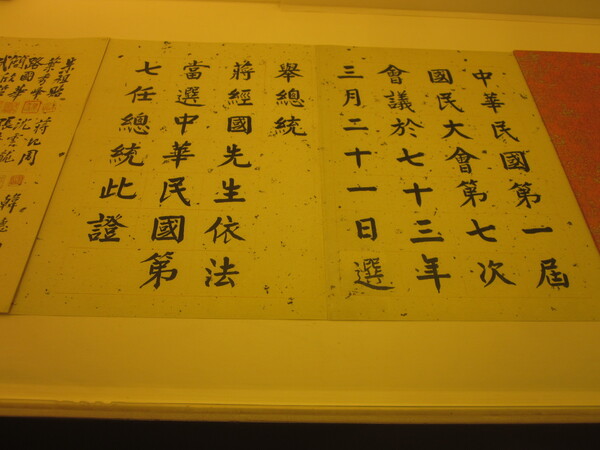 中華民國第一屆
國民大會第七次
會議於七十三年
三月二十一日選
舉總統
蔣經國先生依法
當選中華民國第
七任總統此證